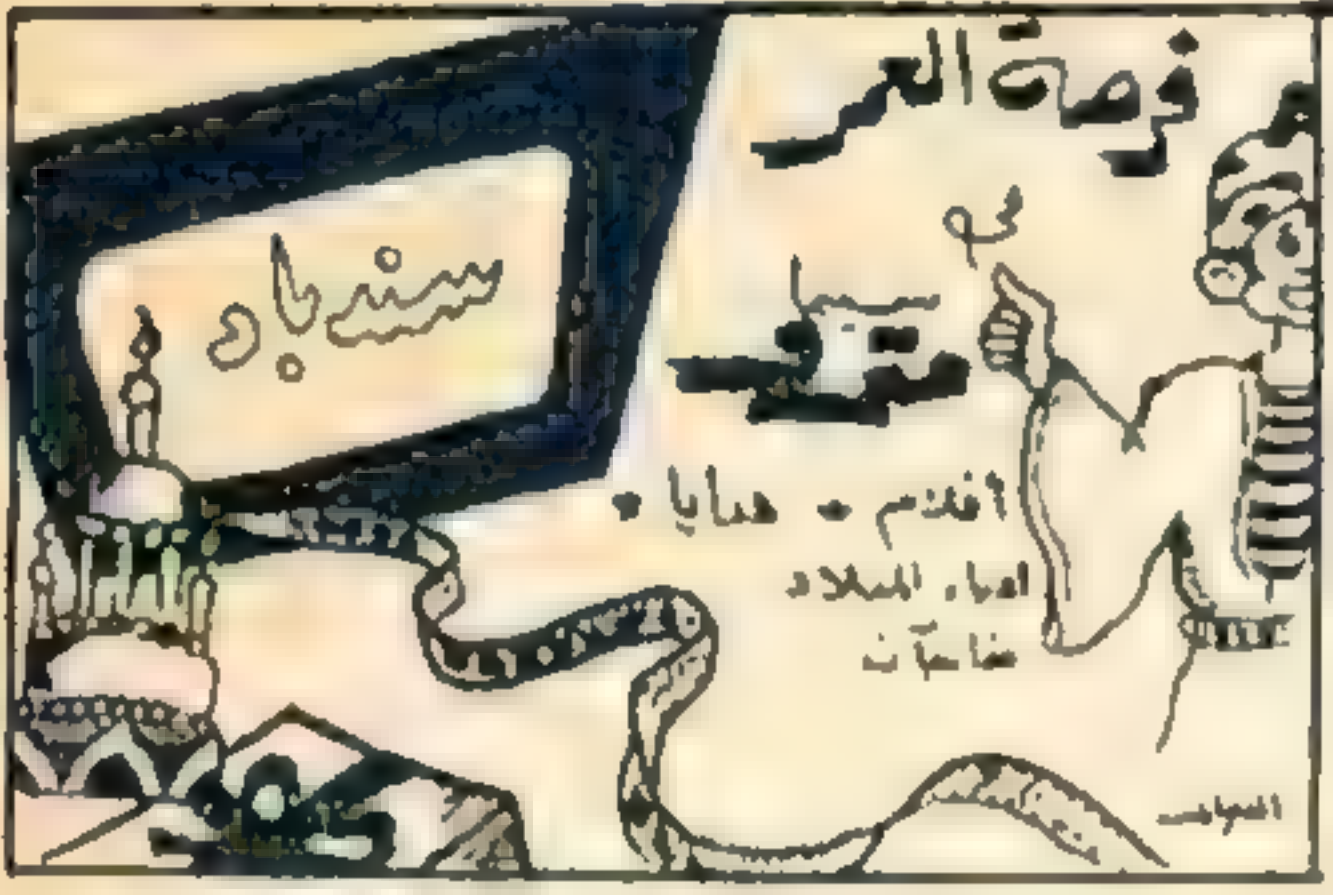 فرصة العمر
مع
سندباد
افلام • هدايا •
اعياد الميلاد
مفاجآت
سندباد